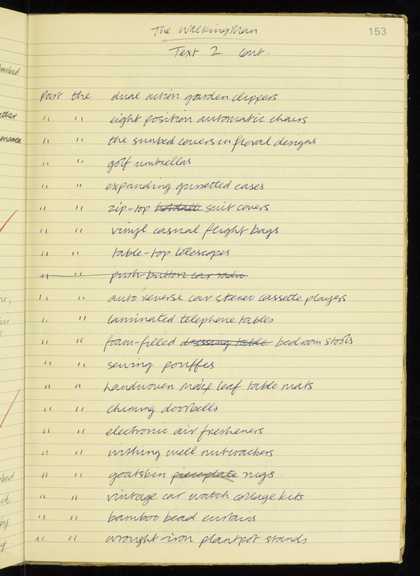 The Walking Man
153
Text 2 cont.
Past the dual action garden clippers
" " eight position automatic chairs
" " the sunbed covers in floral designs
" " golf umbrellas
" " expanding gussetted cases
" " zip-top suit covers
" " vinyl casual flight bags
" " table-top telescopes
" " push button car radio
" " auto reverse car stereo cassette players
" " laminated telephone tables
" " foam-filled dressing table bedroom stools
" " sewing pouffes
" " handwoven maize leaf table mats
" " chiming doorbells
" " electronic air fresheners
" " wishing well nutcrackers
" " goatskin rugs
" " vintage car watch collage kits
" " bamboo bead curtains
" " wrought iron plantpot stands